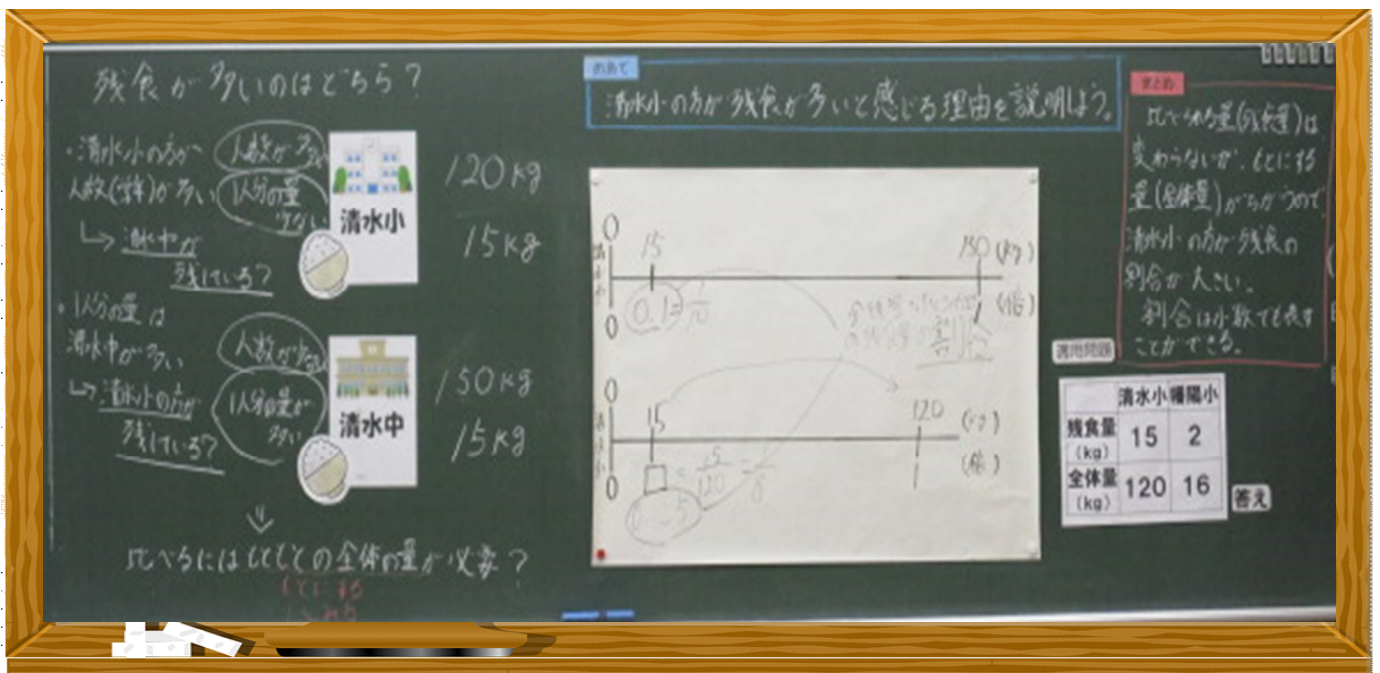 残食が多いのはどちら?
・清水小の方が
人数(学年)が多い
↳清水中が
残している?
人数が多い
1人分の量
少ない
清水小
120kg
15kg
・1人分の量は
清水中が多い
↳清水小の方が
残している?
人数が少ない
1人分の量が
多い
清水中
150kg
15kg
比べるにはもともとの全体の量が必要?
もとにする
めあて
清水小の方が残食が多いと感じる理由を説明しよう。
0 15 150 (kg)
0 0.1=1/10 1 (倍)
0 15 120 (kg)
0 □=15/120=1/8 1 (倍)
まとめ
比べられる量(残食量)は
変わらないが、もとにする
量(全体量)がちがうので
清水小の方が残食の
割合が大きい。
割合は小数でも表す
ことができる。
適用問題
清水小 幡陽小
残食量(kg) 15 2
全体量(kg) 120 16
答え